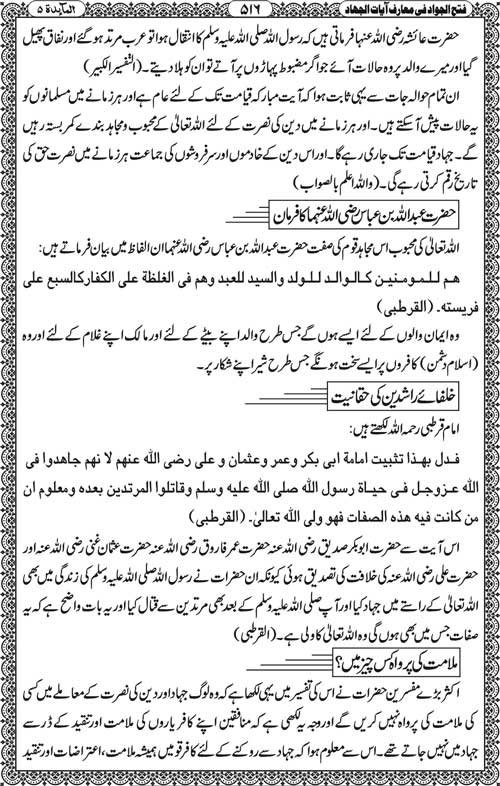 المآيدة ۵ ۵۱۶ فتح الجواد فی معارف آیات الجهاد
حضرت عائشہ رضی اللہ عنہا فرماتی ہیں کہ رسول اللہ صلی اللہ علیہ وسلم کا انتقال ہوا تو عرب مرتد ہو گئے اور نفاق پھیل
گیا اور میرے والد پر وہ حالات آئے جو اگر مضبوط پہاڑوں پر آتے تو ان کو ہلا دیتے۔ (التفسیر الکبیر)
ان تمام حوالہ جات سے یہی ثابت ہوا کہ آیت مبارکہ قیامت تک کے لئے عام ہے اور ہر زمانے میں مسلمانوں کو
یہ حالات پیش آسکتے ہیں۔ اور ہر زمانے میں دین کی نصرت کے لئے اللہ تعالیٰ کے محبوب و مجاہد بندے کمر بستہ رہیں
گے۔ جہاد قیامت تک جاری رہے گا۔ اور اس دین کے خادموں اور سرفروشوں کی جماعت ہر زمانے میں نصرت حق کی
تاریخ رقم کرتی رہے گی۔ (واللہ اعلم بالصواب)
حضرت عبداللہ بن عباس رضی اللہ عنہما کا فرمان
اللہ تعالیٰ کی محبوب اس مجاہد قوم کی صفت حضرت عبداللہ بن عباس رضی اللہ عنہما ان الفاظ میں بیان فرماتے ہیں:
هم للمومنين كالوالد للولد والسيد للعبد وهم فى الغلظة على الكفار كالسبع على
فريسته۔ (القرطبی)
وہ ایمان والوں کے لئے ایسے ہوں گے جس طرح والد اپنے بیٹے کے لئے اور مالک اپنے غلام کے لئے اور وہ
(اسلام دشمن) کافروں پر ایسے سخت ہونگے جس طرح شیر اپنے شکار پر۔
خلفائے راشدین کی حقانیت
امام قرطبی رحمہ اللہ لکھتے ہیں:
فدل بهذا تثبيت امامة ابى بكر وعمر وعثمان و على رضى الله عنهم لا نهم جاهدوا فى
الله عزوجل فى حياة رسول الله صلى الله عليه وسلم وقاتلوا المرتدين بعده ومعلوم ان
من كانت فيه هذه الصفات فهو ولى الله تعالىٰ۔ (القرطبی)
اس آیت سے حضرت ابوبکر صدیق رضی اللہ عنہ حضرت عمر فاروق رضی اللہ عنہ حضرت عثمان غنی رضی اللہ عنہ اور
حضرت علی رضی اللہ عنہ کی خلافت کی تصدیق ہوئی کیونکہ ان حضرات نے رسول اللہ صلی اللہ علیہ وسلم کی زندگی میں بھی
اللہ تعالیٰ کے راستے میں جہاد کیا اور آپ صلی اللہ علیہ وسلم کے بعد بھی مرتدین سے قتال کیا اور یہ بات واضح ہے کہ یہ
صفات جس میں بھی ہوں گی وہ اللہ تعالیٰ کا ولی ہے۔ (القرطبی)
ملامت کی پرواہ کس چیز میں؟
اکثر بڑے مفسرین حضرات نے اس کی تفسیر میں یہی لکھا ہے کہ وہ لوگ جہاد اور دین کی نصرت کے معاملے میں کسی
کی ملامت کی پرواہ نہیں کریں گے اور وجہ یہ لکھی ہے کہ منافقین اپنے کافر یاروں کی ملامت اور تنقید کے ڈر سے
جہاد میں نہیں جاتے تھے۔ اس سے معلوم ہوا کہ جہاد سے روکنے کے لئے کافر قومیں ہمیشہ ملامت، اعتراضات اور تنقید